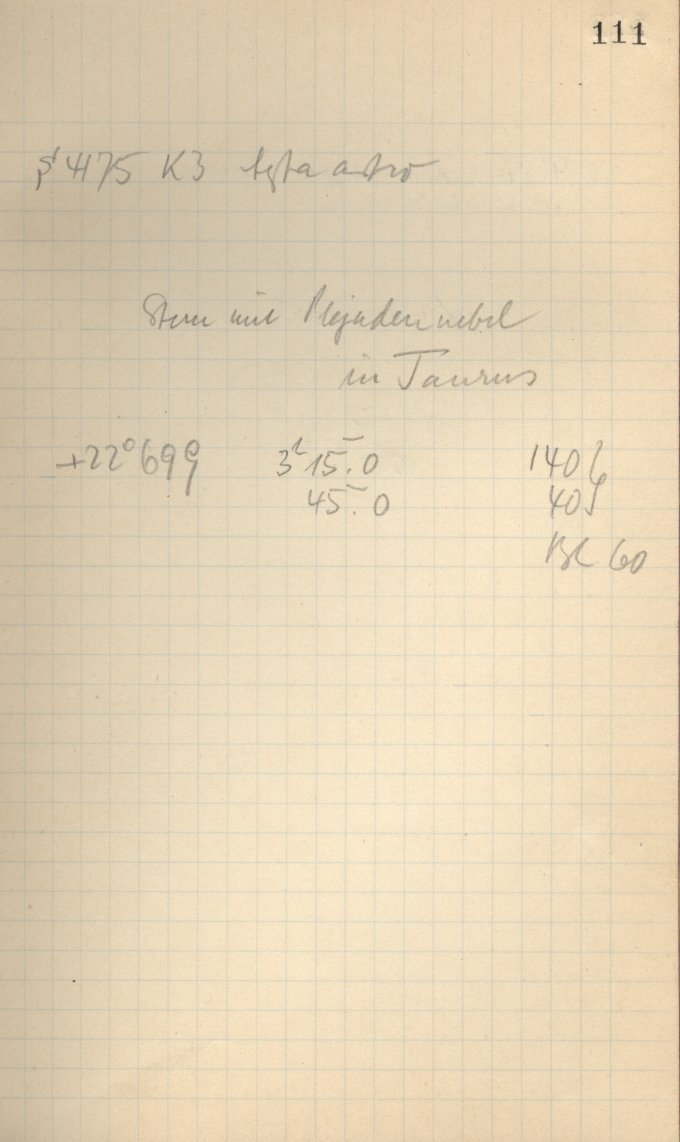 111
4175 K3 Agfa astro
Stern mit Plejadennebel
in Taurus
+22° 699 3h 15m.0 140
45m.0 40
Bl 60